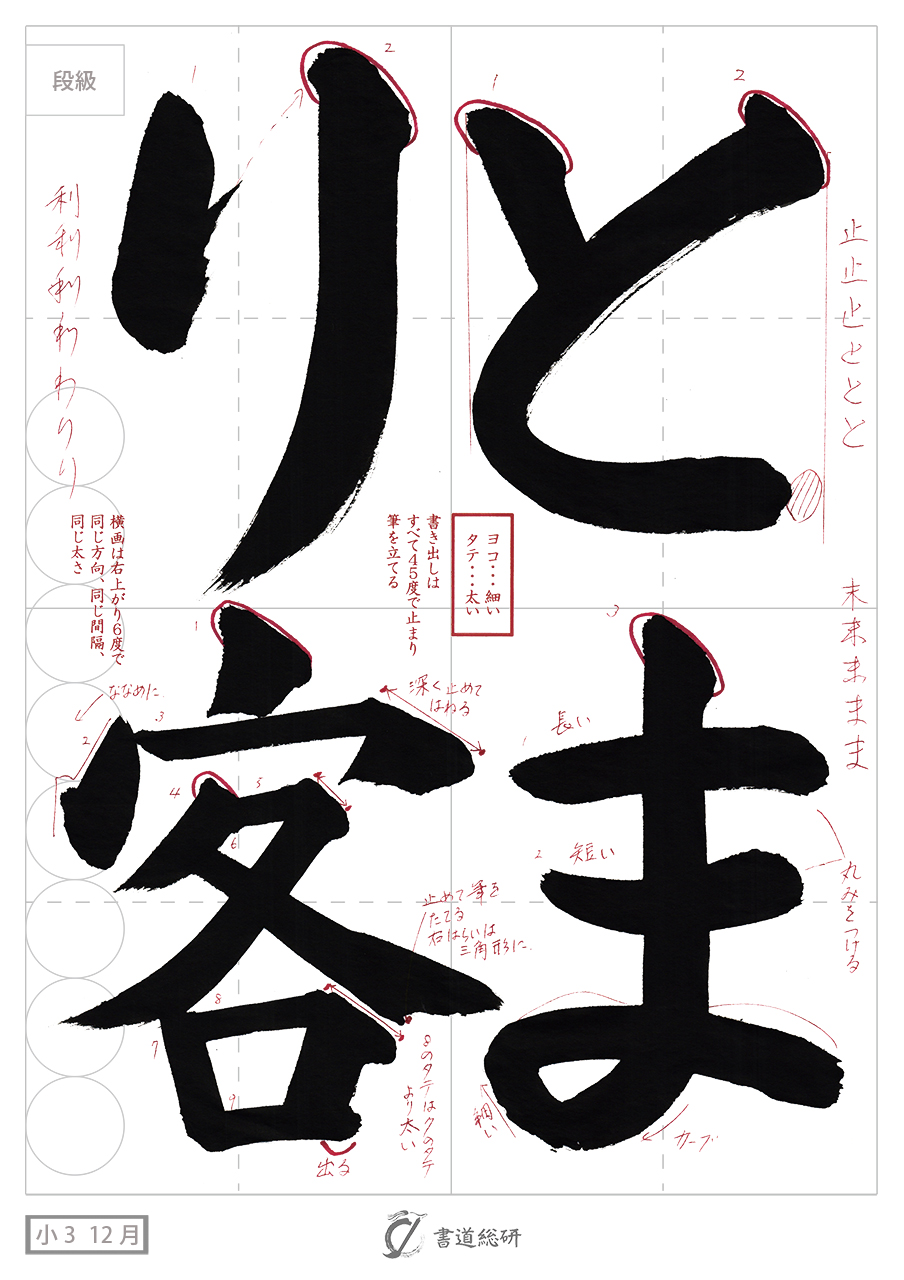 段級
とま
り客
止止止ととと
未末まままま
利利利わわりり
1
2
1
2
ヨコ・・・細い
タテ・・・太い
書き出しは
すべて45度で止まり
筆を立てる
横画は右上がり6度で
同じ方向、同じ間隔、
同じ太さ
3
長い
1
2
短い
丸みをつける
カーブ
1
2
3
ななめに
深く止めて
はねる
4
5
6
止めて筆を
たてる
右はらいは
三角形に
7
8
9
8のタテは7のタテ
より太い
出る
小3 12月
書道総研